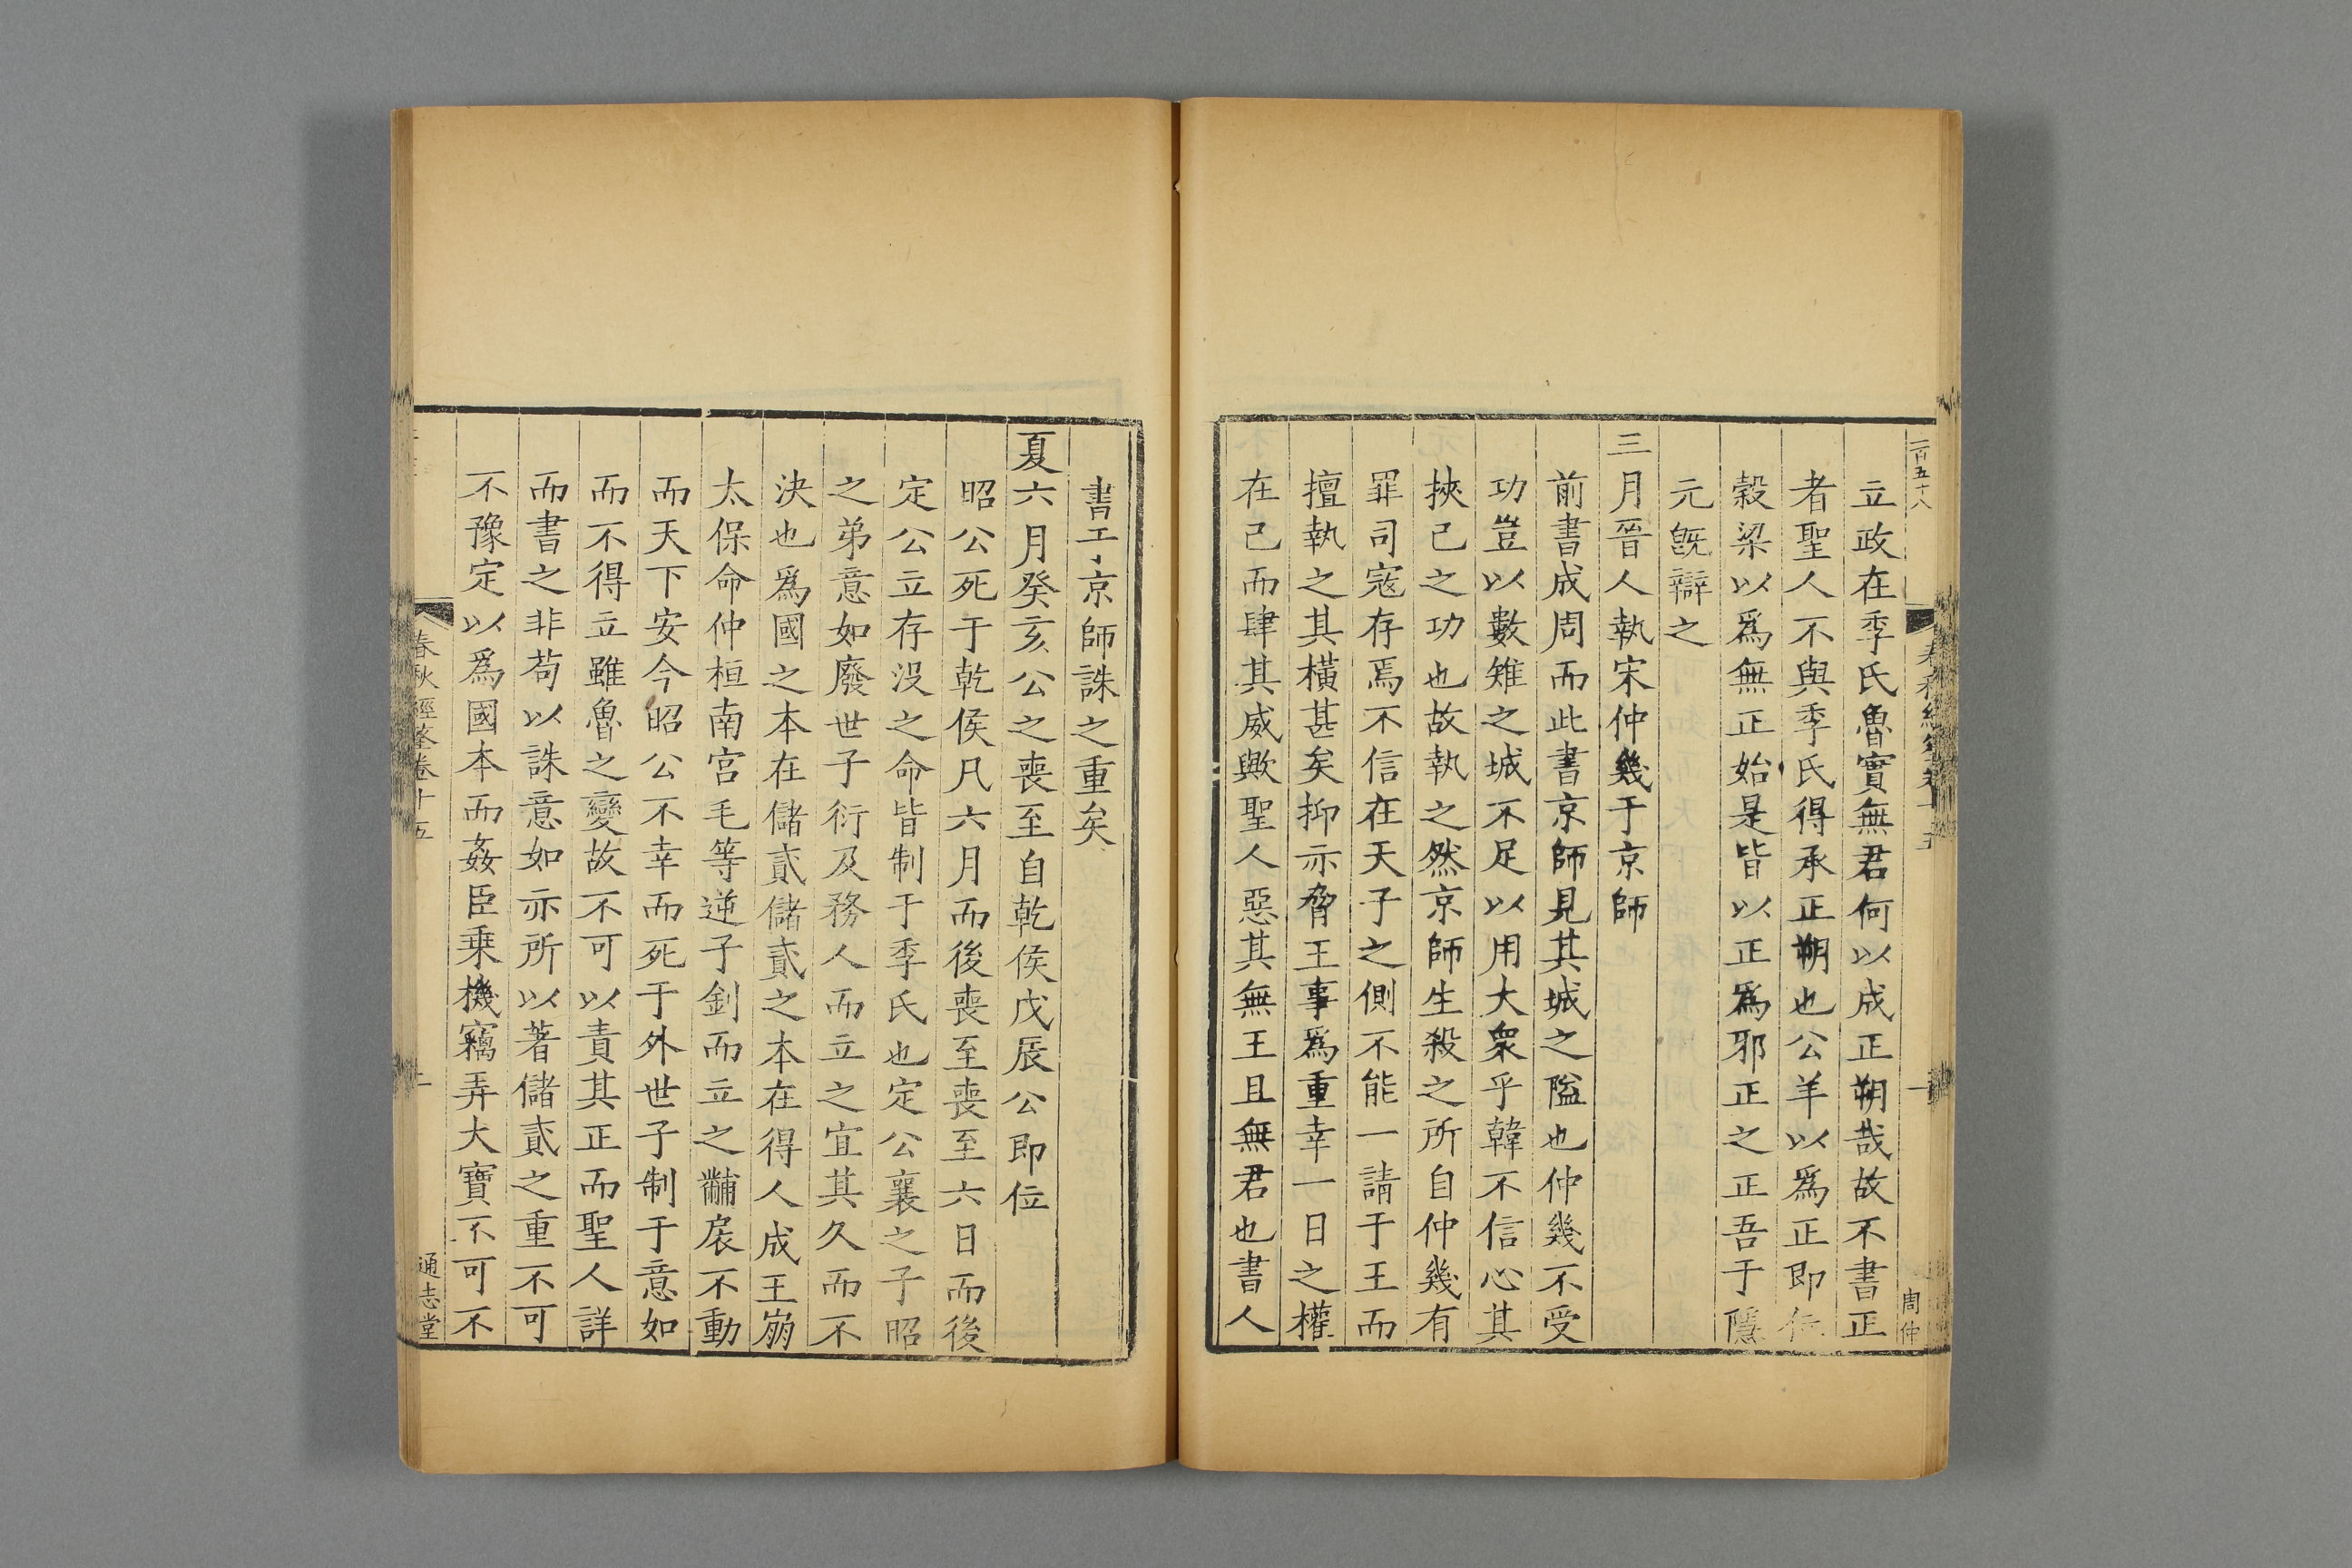 二百五十八
周仲
立政在季氏魯實無君何以成正朔哉故不書正
者聖人不與季氏得承正朔也公羊以爲正即位
穀梁以爲無正始是皆以正爲邪正之正吾于隱
元旣辯之
三月晉人執宋仲幾于京師
前書成周而此書京師見其城之隘也仲幾不受
功豈以數雉之城不足以用大衆乎韓不信心其
挾己之功也故執之然京師生殺之所自仲幾有
罪司寇存焉不信在天子之側不能一請于王而
擅執之其橫甚矣抑亦脅王事爲重幸一日之權
在己而肆其威歟聖人惡其無王且無君也書人
書于京師誅之重矣
夏六月癸亥公之喪至自乾侯戊辰公即位
昭公死于乾侯凡六月而後喪至喪至六日而後
定公立存沒之命皆制于季氏也定公襄之子昭
之弟意如廢世子衍及務人而立之宜其久而不
決也爲國之本在儲貳儲貳之本在得人成王崩
太保命仲桓南宮毛等逆子釗而立之黼扆不動
而天下安今昭公不幸而死于外世子制于意如
而不得立雖魯之變故不可以責其正而聖人詳
而書之非苟以誅意如亦所以著儲貳之重不可
不豫定以爲國本而姦臣乗機竊弄大寶不可不
春秋經筌卷十五
通志堂